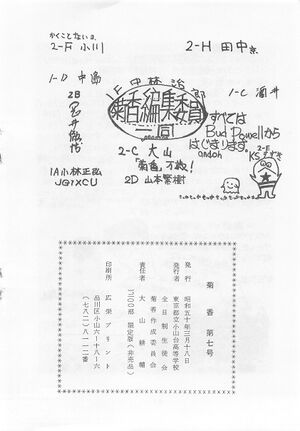 かくことないョ
2-F 小川
2-H 田中
1F 中林治郎
1-D 中島
菊香編集委員
一同
1-C 酒井
2B
すべては
Bud Powellから
はじまります。
andoh
2-C 大山
「菊香」不救!
2-F
1A 小林正弘
JG1XCU
2D 山本繁樹
菊香 第七号
発行 昭和五十年三月十八日
発行者 東京都立小山台高等学校
全日制生徒会
菊香作成委員会
責任者 大山耕輔
1500部 限定版(非売品)
印刷所 広栄プリント
品川区小山六ー十八ー六
(七八二)八一一二番